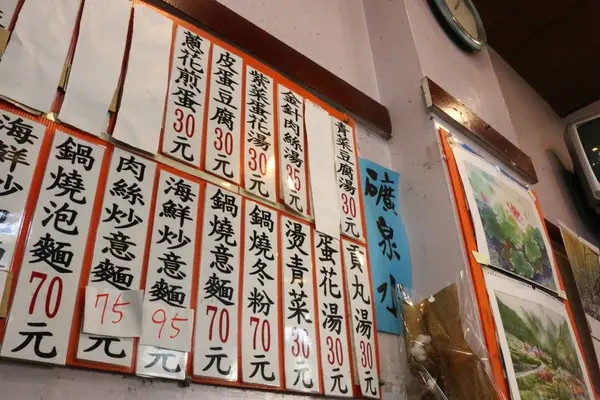 蔥花煎蛋30元
皮蛋豆腐30元
紫菜蛋花湯30元
金針肉絲湯35元
青菜豆腐湯30元
海鮮炒
鍋燒泡麵70元
肉絲炒意麵75元
海鮮炒意麵95元
鍋燒意麵70元
鍋燒冬粉70元
燙青菜30元
蛋花湯30元
貢丸湯30元
礦泉水